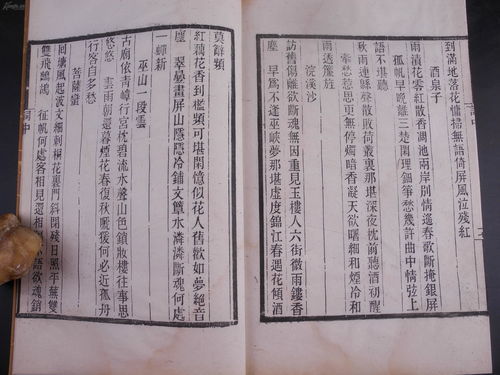 到滿地落花慵掃無語倚屏風泣殘紅
酒泉子
雨漬花零紅散香凋池兩岸別情遙春歌斷掩銀屏
孤帆早晚離三楚閒理鈿箏愁幾許曲中情弦上
語不堪聽
秋雨連緜聲散敗荷叢裏那堪深夜枕前聽酒初醒
牽愁惹思更無停燭暗香凝天欲曙細和煙冷和
雨透簾旌
浣溪沙
訪舊傷離欲斷魂無因重見玉樓人六街微雨鏤香
塵 早為不逢巫峽夢那堪虛度錦江春遇花傾酒
莫辭頻
紅藕花香到檻頻可堪閒憶似花人舊歡如夢絕音
塵 翠疊畫屏山隱隱冷鋪文簟水潾潾斷魂何處
一蟬新
巫山一段雲
古廟依青嶂行宮枕碧流水聲山色鎖妝樓往事思
悠悠 雲雨朝還暮煙花春復秋啼猿何必近孤舟
行客自多愁
菩薩蠻
回塘風起波文細刺桐花裏門斜閉殘日照平蕪雙
雙飛鷓鴣 征帆何處客相見還相語欲魂銷